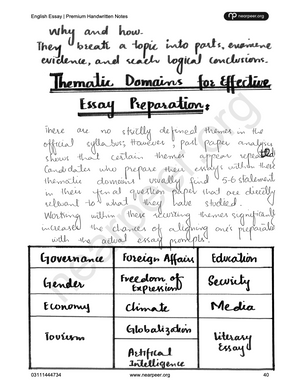 English Essay | Premium Handwritten Notes
nearpeer.org
Why and how.
They break a topic into parts, examine
evidence, and reach logical conclusions.
Thematic Domains for Effective
Essay Preparation:
There are no strictly defined themes in the
official syllabus, However, past paper analysis
shows that certain themes appear repeatedly
Candidates who prepare their essays within these
thematic domains usually find 5-6 statements
in their final question paper that are directly
relevant to what they have studied.
Working within these recurring themes significantly
increases the chances of aligning one's preparation
with the actual essay prompts.
Governance Foreign Affairs Education
Gender Freedom of Expression Security
Economy Climate Media
Tourism Globalization Literary Essay
Artificial Intelligence
nearpeer.org
03111444734 www.nearpeer.org 40